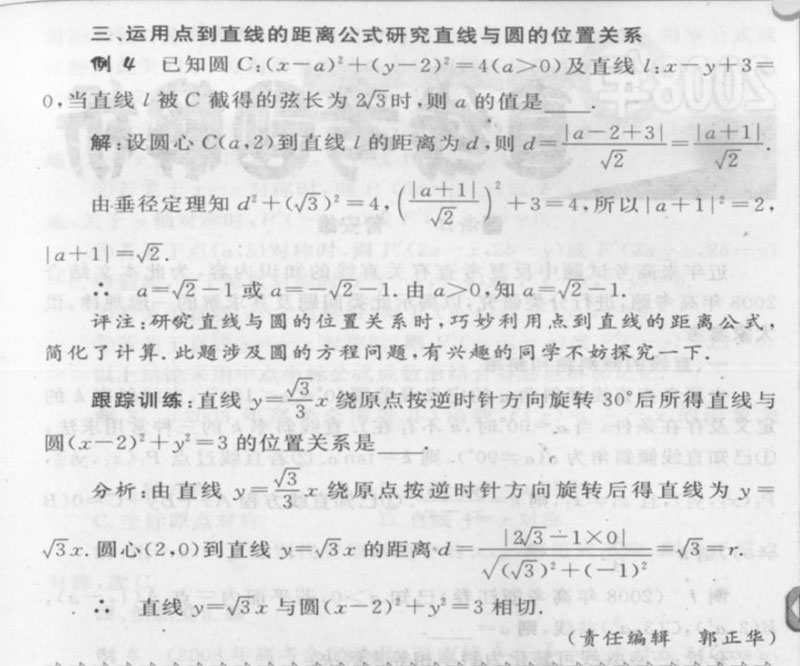 三、运用点到直线的距离公式研究直线与圆的位置关系
例4 已知圆 C:(x-a)²+(y-2)²=4(a>0)及直线 l:x-y+3=
0,当直线 l 被 C 截得的弦长为 2√3时,则 a 的值是____.
解:设圆心 C(a,2)到直线 l 的距离为 d,则 d=|a-2+3|/√2=|a+1|/√2.
由垂径定理知 d²+(√3)²=4,(|a+1|/√2)²+3=4,所以|a+1|²=2,
|a+1|=√2.
∴ a=√2-1或 a=-√2-1.由 a>0,知 a=√2-1.
评注:研究直线与圆的位置关系时,巧妙利用点到直线的距离公式,
简化了计算.此题涉及圆的方程问题,有兴趣的同学不妨探究一下.
跟踪训练:直线 y=√3/3 x 绕原点按逆时针方向旋转 30°后所得直线与
圆(x-2)²+y²=3 的位置关系是____.
分析:由直线 y=√3/3 x 绕原点按逆时针方向旋转后得直线为 y=
√3x.圆心(2,0)到直线 y=√3x 的距离 d=|2√3-1×0|/√((√3)²+(-1)²)=√3=r.
∴ 直线 y=√3x 与圆(x-2)²+y²=3 相切.
(责任编辑 郭正华)